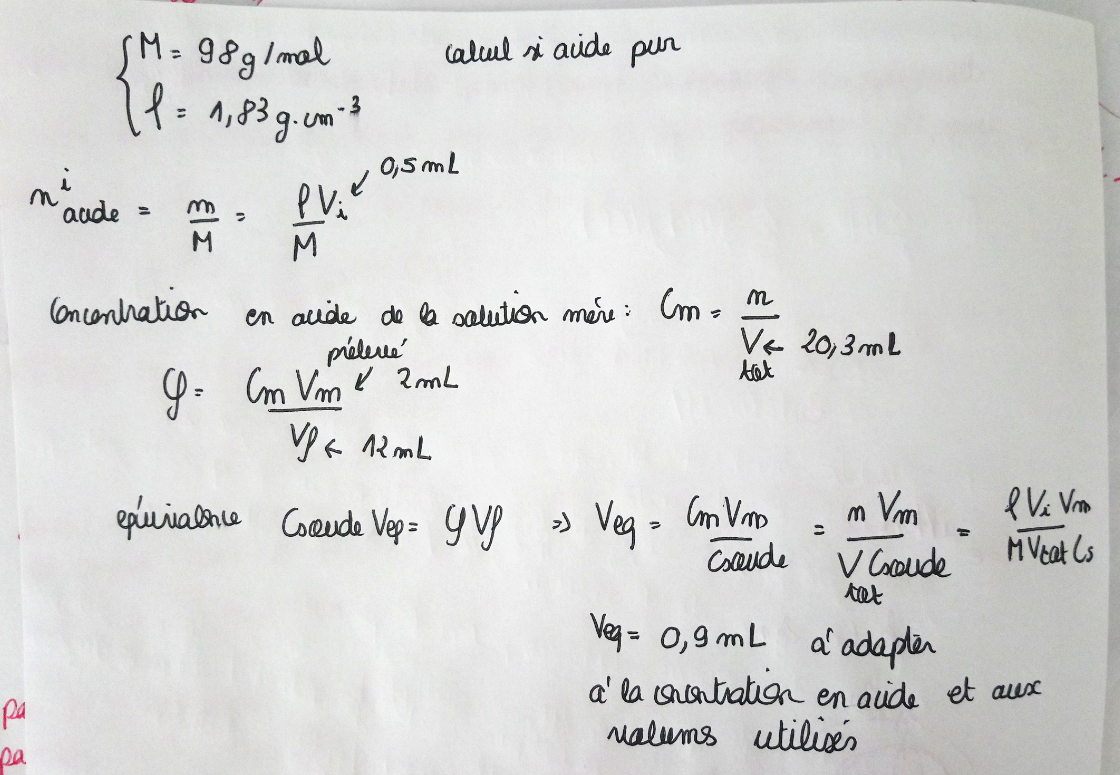 M = 98 g/mol calcul si acide pur
ρ = 1,83 g.cm⁻³
nⁱacide = m/M = ρVi/M ← 0,5 mL
Concentration en acide de la solution mère : Cm = n/Vtot ← 20,3 mL
Cf = Cm Vm/Vf prélevé ← 2 mL
Vf ← 12 mL
équivalence Csoude Veq = Cf Vf => Veq = Cm Vm/Csoude = n Vm/Vtot Csoude = ρ Vi Vm/M Vtot Cs
Veq = 0,9 mL à adapter
à la concentration en acide et aux
volums utilisés
pa
pa